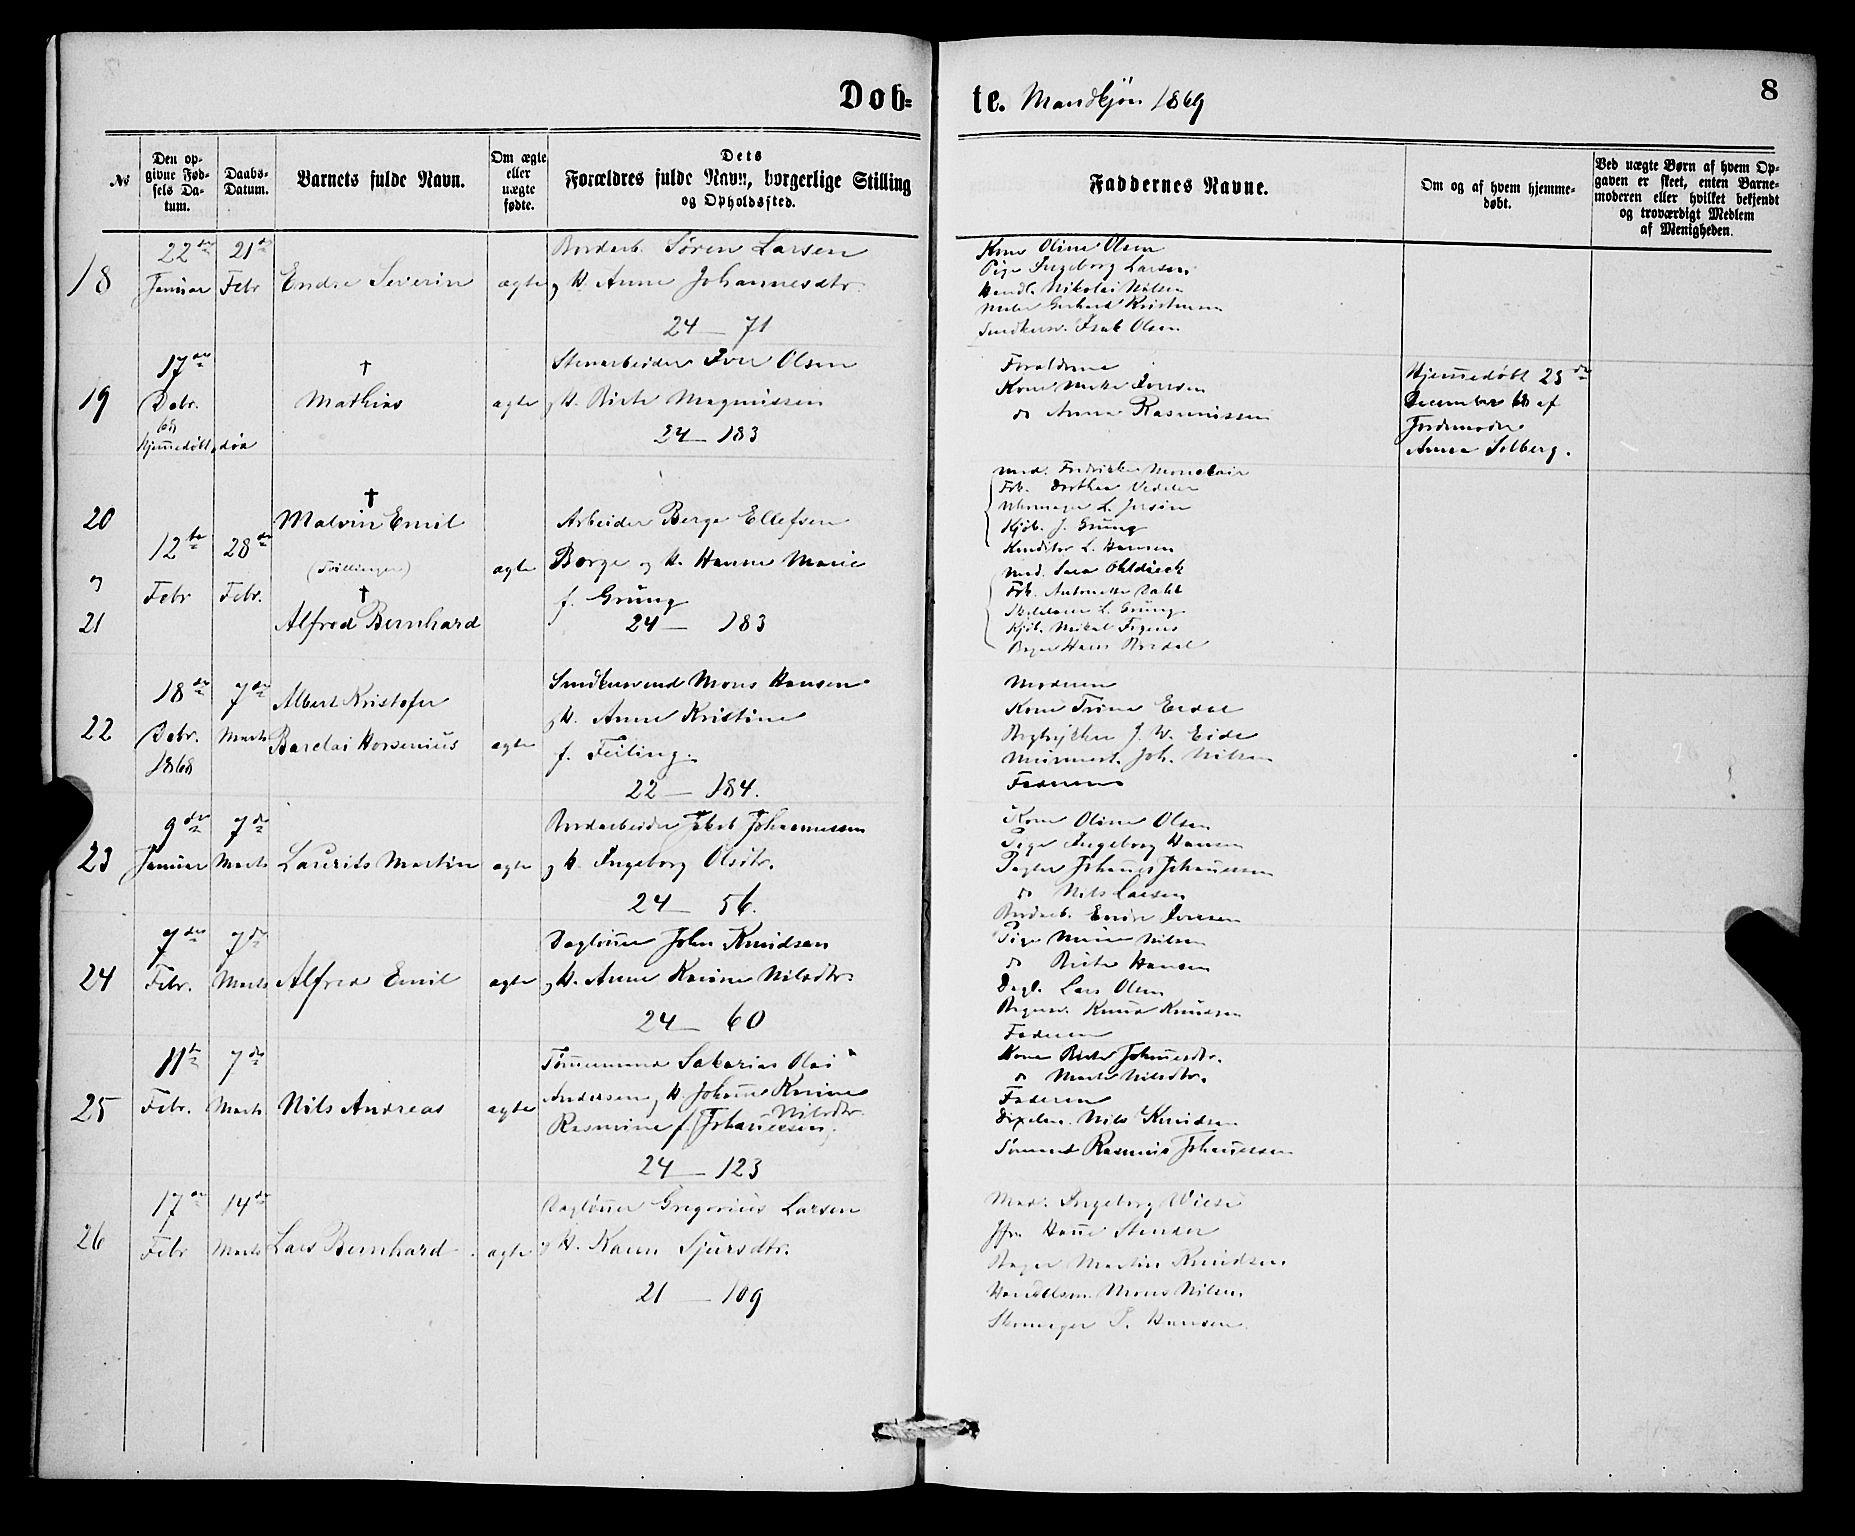 Døb-
te. Mandkjøn 1869
8
No
Den op-
givne Fød-
sels Da-
tum.
Daabs-
Datum.
Barnets fulde Navn.
Om ægte
eller
uægte
fødte.
Dets
Forældres fulde Navn, borgerlige Stilling
og Opholdssted.
Faddernes Navne.
Om og af hvem hjemme-
døbt.
Ved uægte Børn af hvem Op-
gaven er skeet, enten Barne-
moderen eller hvilket bekjendt
og troværdigt Medlem
af Menigheden.
18
22de
Januar
21de
Febr
Endre Severin
ægte
Søren Larsen
og H. Anne Johannesdtr.
24 — 71
Kone Oline Olsen
Pige Ingeborg Larsen
Handl. Nikolai Nilsen
Maler Gerhard Kristensen
Isak Olsen
19
17de
Debr.
68
Hjemmedøbt, død
†
Mathias
ægte
Stenarbeider Iver Olsen
og H. Birte Magnussen
24 — 183
Forældrene
Kone Iversen
do Anna Rasmussen
Hjemmedøbt 23de
December 68 af
Jordemoder
Anna Solberg.
20
og
21
12te
Febr
28de
Febr.
†
Malvin Emil
(Tvillinger)
†
Alfred Bernhard
ægte
Arbeider Berge Ellefsen
Borge og H. Hanne Marie
f. Grung
24 — 183
Mad. Fredrikke Monclair
Frk. Dorthea Vedeler
Uhrmager L. Jersin
Kjøb. J. Grung
Konditor L. Hansen
Mad. Sara Ohldieck
Frk. Antonette Dahl
L. Grung
Kjøb. Mikal
Hans
22
18de
Debr.
1868
7de
Marts
Albert Kristofer
Barclai Horsenius
ægte
Smedkersvend Mons Hansen
og H. Anne Kristine
f. Feiling.
22 — 184.
Moderen
Kone Trine Erdal
J. W. Eide
Murmest. Joh. Nilsen
Faderen
23
9de
Januar
7de
Marts
Laurits Martin
ægte
Jakob Johannessen
og H. Ingeborg Olsdtr.
24 — 56.
Kone Oline Olsen
Pige Ingeborg Hansen
Johannes Johannessen
do Nils Larsen
Endre Iversen
24
7de
Febr.
7de
Marts
Alfred Emil
ægte
Dagløner John Knudsen
og H. Anne Karine Nilsdtr.
24 — 60
Pige Marie Nilsen
do Birte Hansen
Dagl. Lars Olsen
Knud Knudsen
Faderen
25
11te
Febr.
7de
Marts
Nils Andreas
ægte
Tømmermand Sakarias Olai
Andersen og H. Johanne Karine
Rasmine f. (Johannessen) Nilsdtr.
24 — 123
Kone Birte Johannesdtr.
do Marte Nilsdtr.
Faderen
Nils Knudsen
Sømand Rasmus Johannessen
26
17de
Febr
14de
Marts
Lars Bernhard
ægte
Dagløner Gregorius Larsen
og H. Karen Sjursdtr.
21 — 109
Mad. Ingeborg Wiese
Jfr. Hanne Stender
Martin Knudsen
Handelsm. Mons Nilsen
Skomager P. Hansen